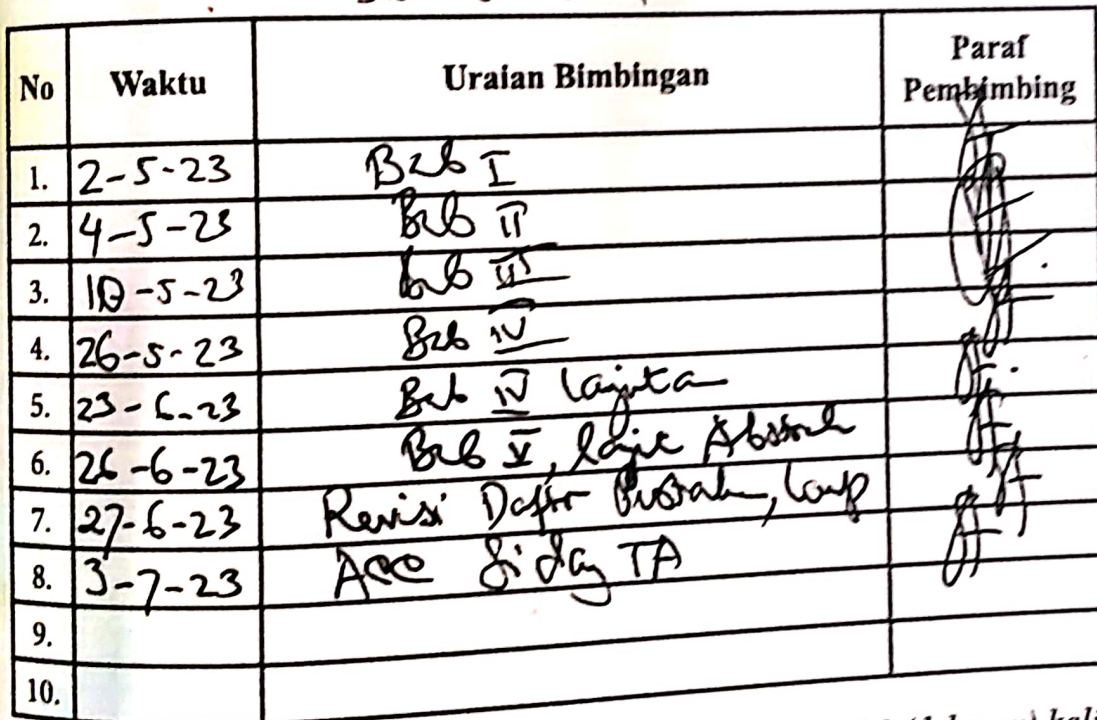 No Waktu Uraian Bimbingan Paraf Pembimbing
1. 2-5-23 Bab I
2. 4-5-23 Bab II
3. 10-5-23 Bab III
4. 26-5-23 Bab IV
5. 23-6-23 Bab IV lanjuta
6. 26-6-23 Bab V, Abstrak
7. 27-6-23 Revisi Daftr Pustaka, Lamp
8. 3-7-23 Acc Sidang TA
9.
10.
kali